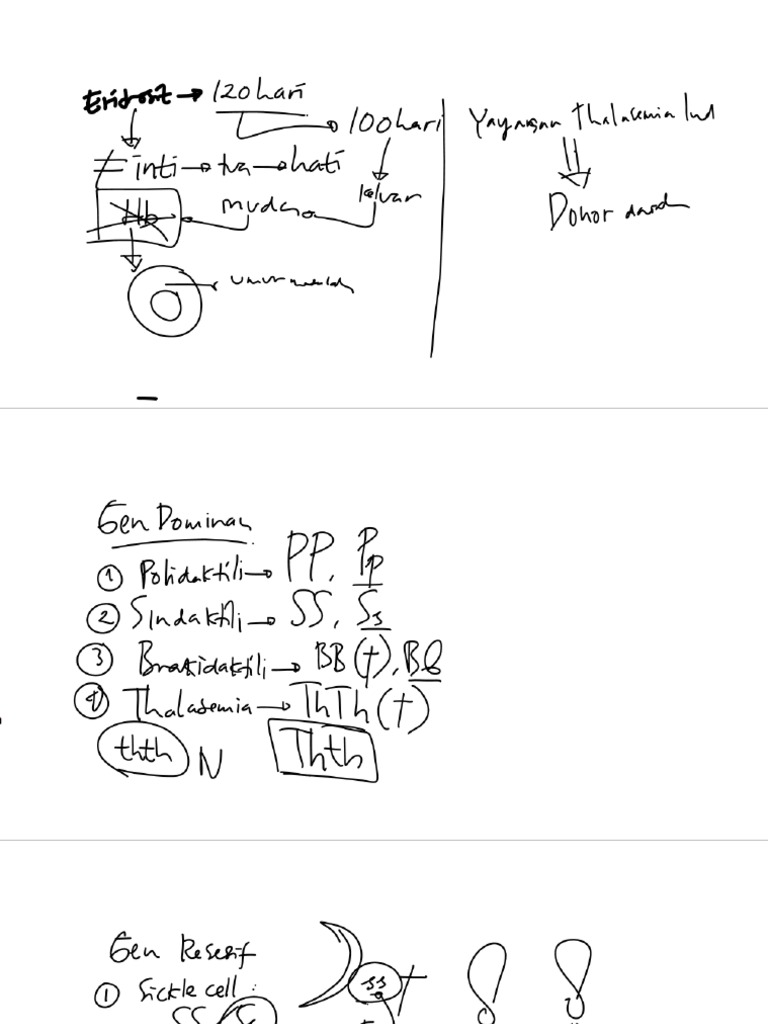 Eridrosit → 120 hari
→ 100 hari
≠ inti → tua → hati
keluar
Hb
muda
Yayasan Thalasemia Ind
⇓
Donor darah
Gen Dominan
① Polidaktili → PP, Pp
② Sindaktili → SS, Ss
③ Brakidaktili → BB (†), Bb
④ Thalasemia → ThTh (†)
thth N Thth
Gen Resesif
① Sickle cell :
ss †
SS